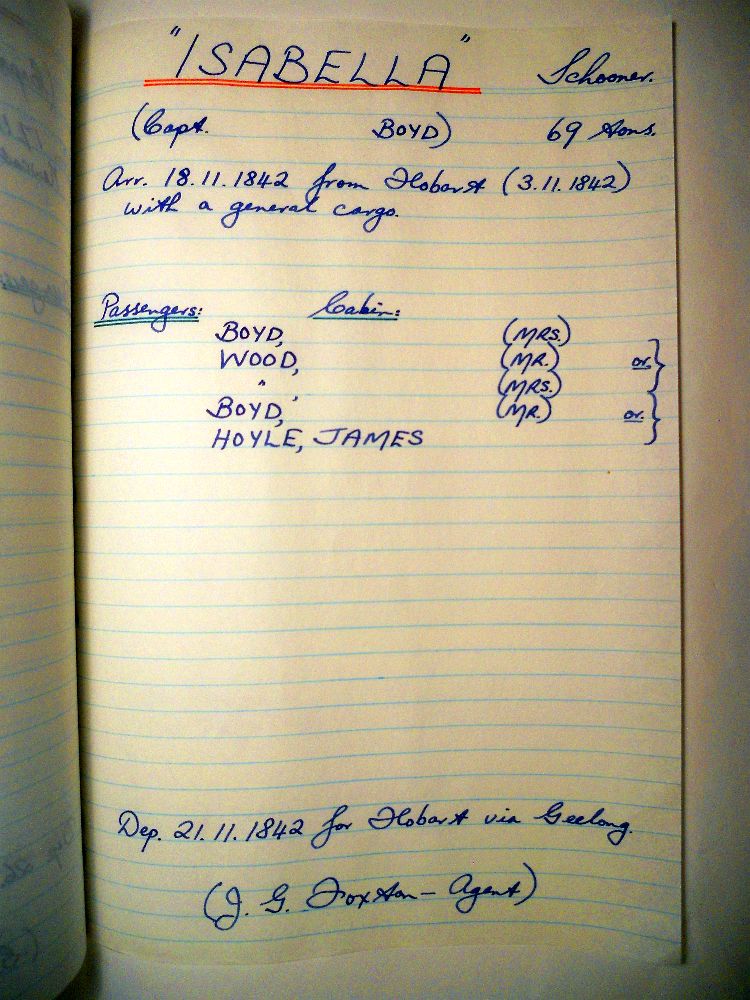 "ISABELLA" Schooner.
(Capt. BOYD) 69 tons.
Arr. 18.11.1842 from Hobart (3.11.1842)
with a general cargo.
Passengers: Cabin:
BOYD, (MRS.)
WOOD, (MR.) or
" (MRS.)
BOYD, (MR.) or.
HOYLE, JAMES
Dep. 21.11.1842 for Hobart via Geelong.
(J. G. Foxton - Agent)